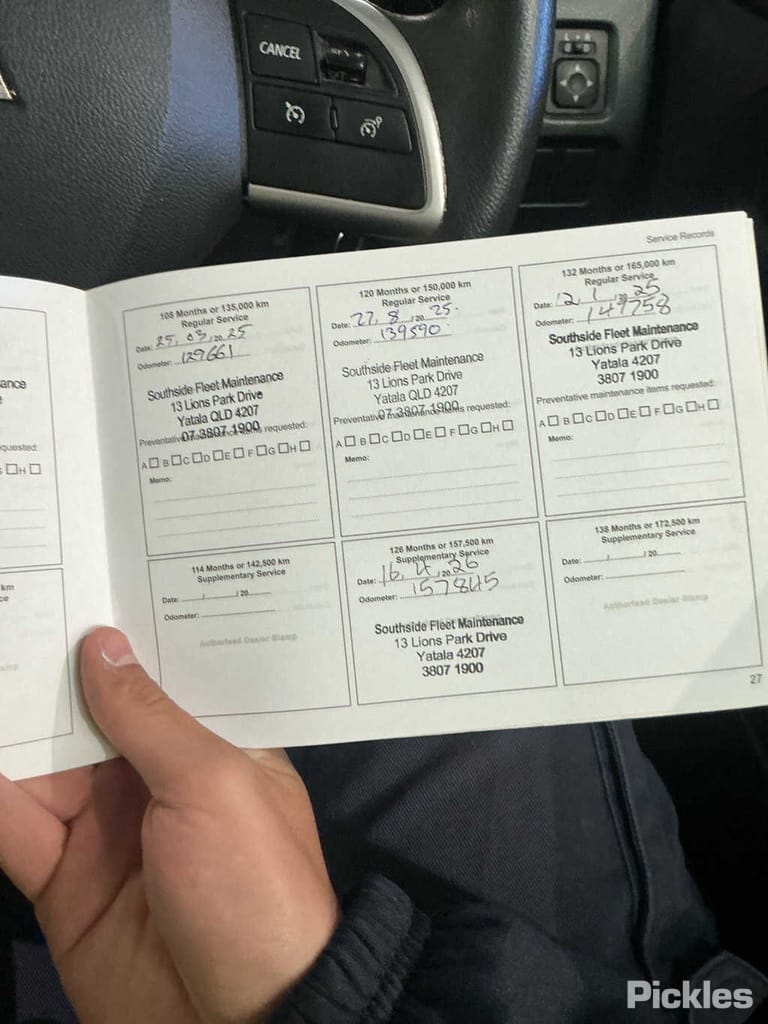 CANCEL
L R
Service Records
108 Months or 135,000 km
Regular Service
Date: 25, 03, 2025
Odometer: 129661
Southside Fleet Maintenance
13 Lions Park Drive
Yatala QLD 4207
07 3807 1900
Preventative maintenance items requested:
A B C D E F G H
Memo:
120 Months or 150,000 km
Regular Service
Date: 27, 8, 2025.
Odometer: 139590.
Southside Fleet Maintenance
13 Lions Park Drive
Yatala QLD 4207
07 3807 1900
Preventative maintenance items requested:
A B C D E F G H
Memo:
132 Months or 165,000 km
Regular Service
Date: 12, 1, 2025
Odometer: 147758
Southside Fleet Maintenance
13 Lions Park Drive
Yatala 4207
3807 1900
Preventative maintenance items requested:
A B C D E F G H
Memo:
114 Months or 142,500 km
Supplementary Service
Date: / / 20
Odometer:
Authorised Dealer Stamp
126 Months or 157,500 km
Supplementary Service
Date: 16, 4, 2026
Odometer: 157845
Southside Fleet Maintenance
13 Lions Park Drive
Yatala 4207
3807 1900
138 Months or 172,500 km
Supplementary Service
Date: / / 20
Odometer:
Authorised Dealer Stamp
27
Pickles